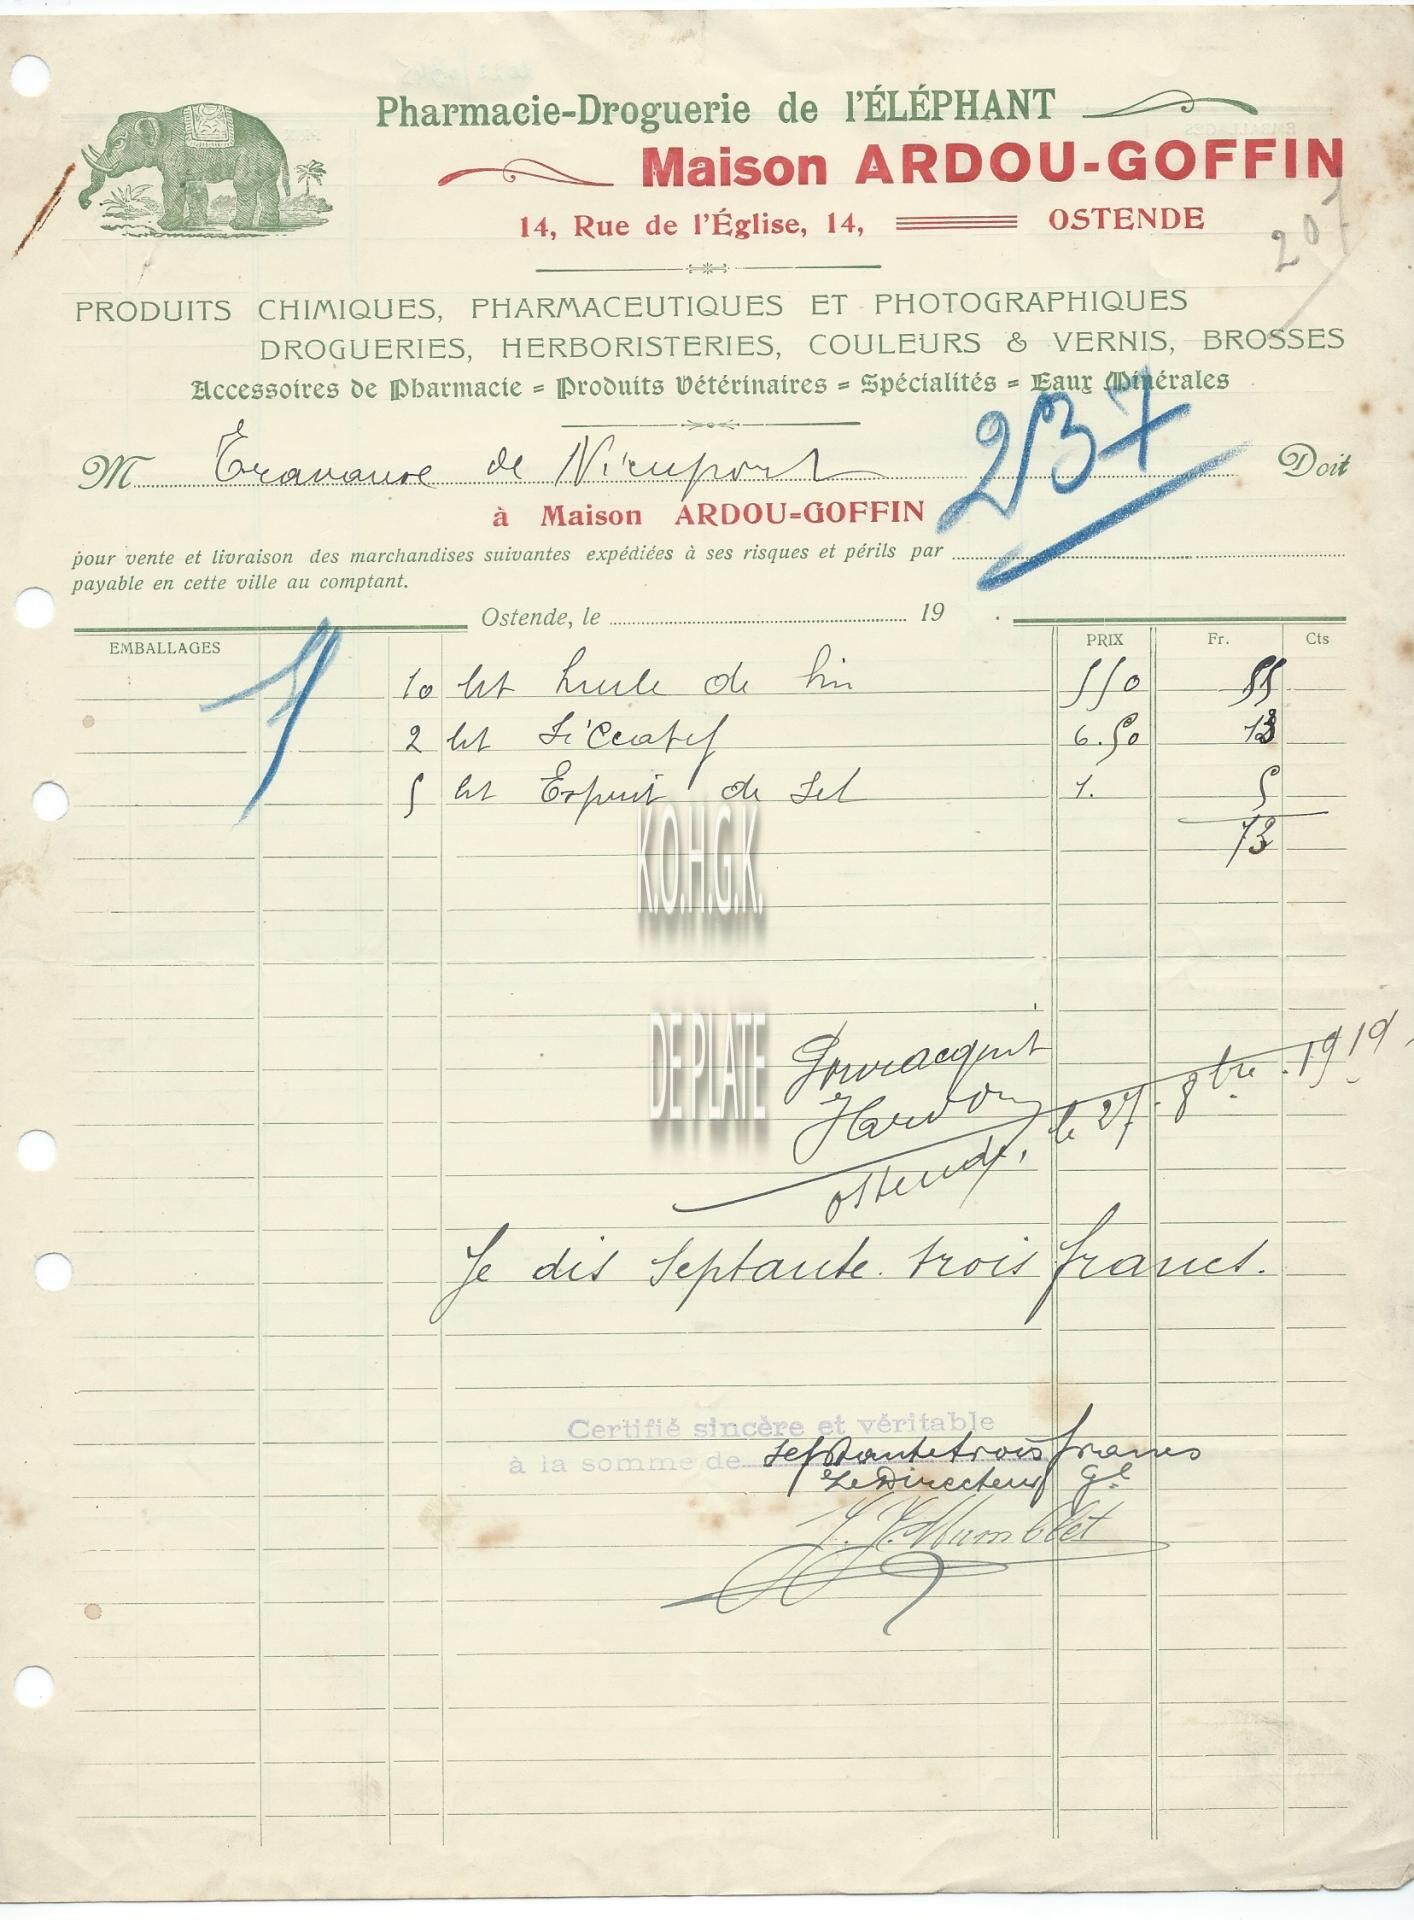 Pharmacie-Droguerie de l'ÉLÉPHANT
Maison ARDOU-GOFFIN
14, Rue de l'Église, 14, OSTENDE
207
PRODUITS CHIMIQUES, PHARMACEUTIQUES ET PHOTOGRAPHIQUES
DROGUERIES, HERBORISTERIES, COULEURS & VERNIS, BROSSES
Accessoires de Pharmacie = Produits Vétérinaires = Spécialités = Eaux Minérales
237
M Travaux de Nieuport Doit
à Maison ARDOU=GOFFIN
pour vente et livraison des marchandises suivantes expédiées à ses risques et périls par
payable en cette ville au comptant.
Ostende, le 19
EMBALLAGES PRIX Fr. Cts
1
10 lit huile de lin 5 50 55
2 lit Siccatif 6.50 13
5 lit Esprit de Sel 1. 5
73
K.O.H.G.K.
DE PLATE
Pour acquit
Ostende, le 27. 8bre. 1919.
Je dis septante trois francs.
Certifié sincère et véritable
à la somme de septante trois francs
Le Directeur Gl
J. J. Humblet